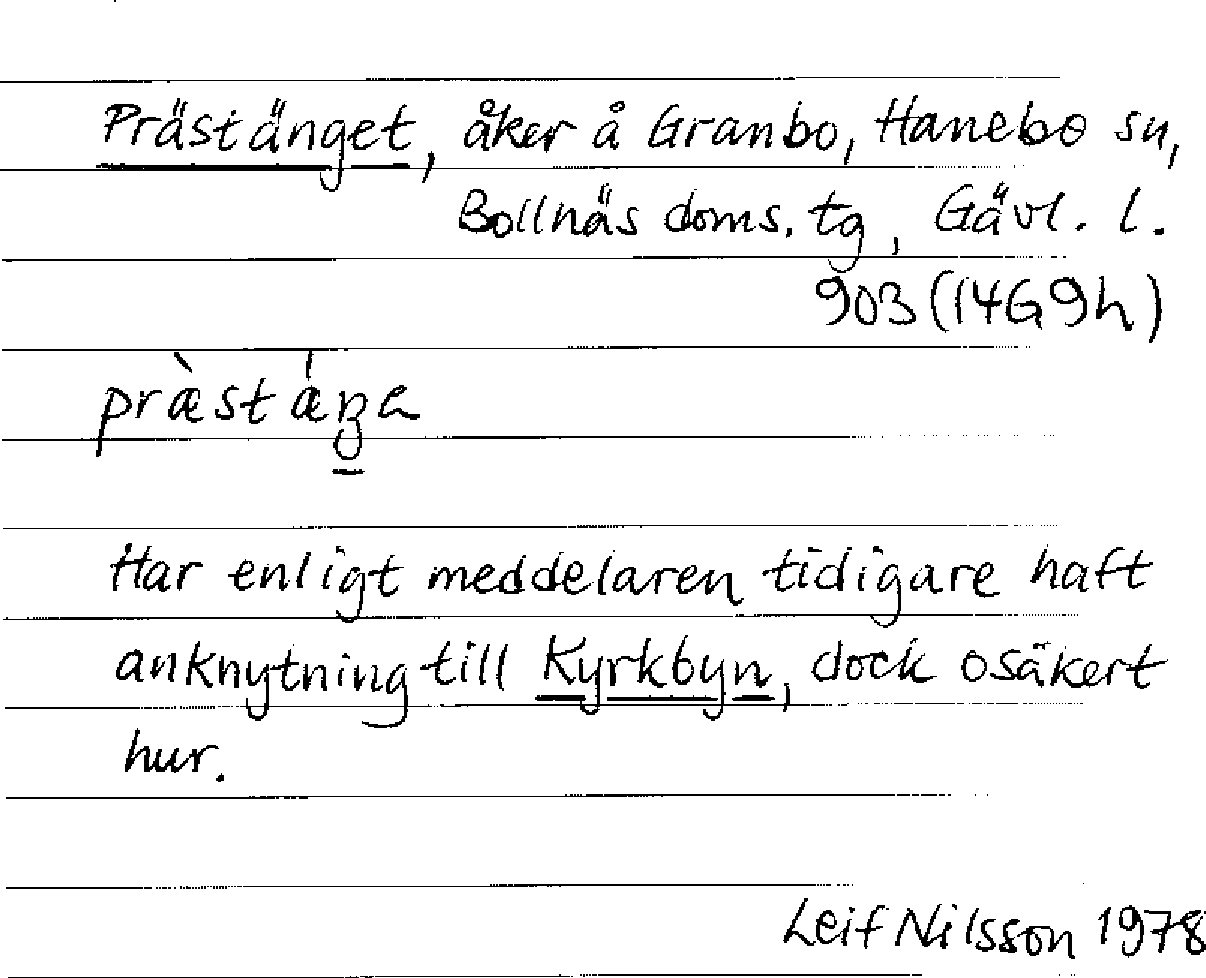 Prästänget, åker å Granbo, Hanebo sn,
Bollnäs doms. tg, Gävl. l.
903 (14G9h)
Har enligt meddelaren tidigare haft
anknytning till Kyrkbyn, dock osäkert
hur.
Leif Nilsson 1978